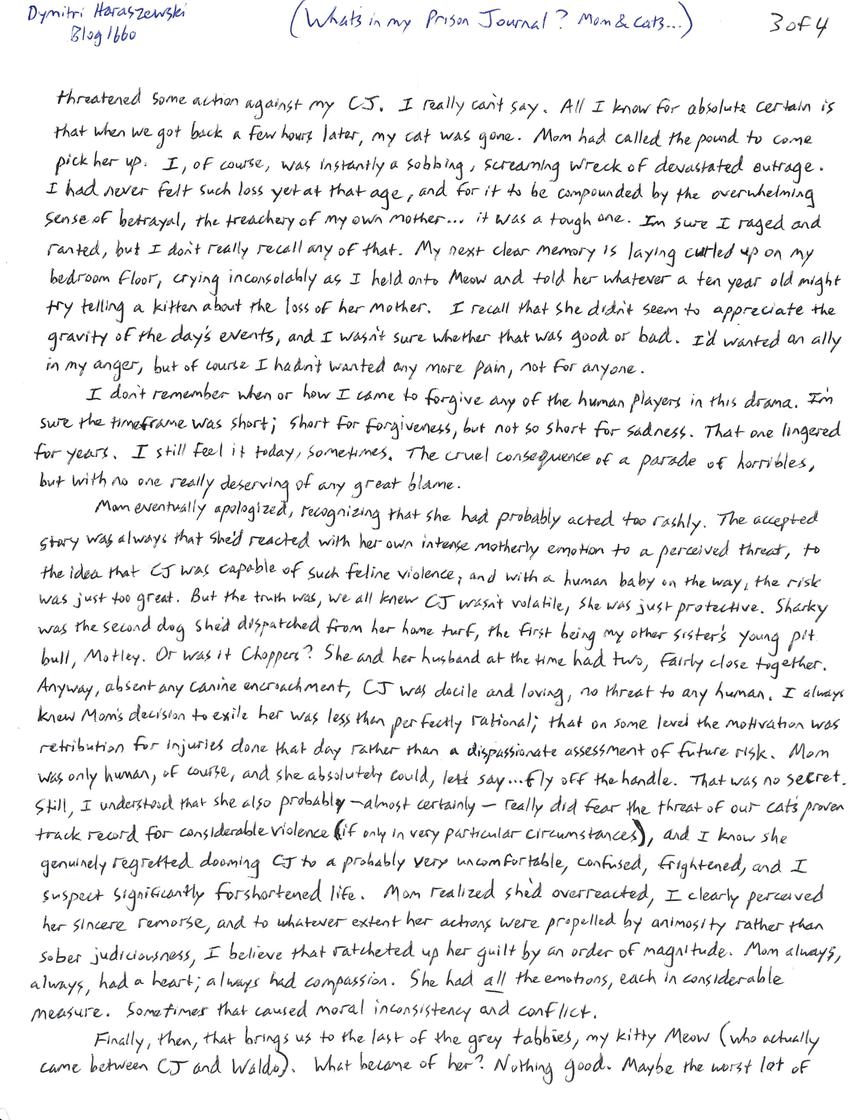 Dymitri Haraszewski
Blog 1660
(What's in my Prison Journal? Mom & Cats...)
3 of 4
threatened some action against my CJ. I really can't say. All I know for absolute certain is
that when we got back a few hours later, my cat was gone. Mom had called the pound to come
pick her up. I, of course, was instantly a sobbing, screaming wreck of devastated outrage.
I had never felt such loss yet at that age, and for it to be compounded by the overwhelming
sense of betrayal, the treachery of my own mother... it was a tough one. I'm sure I raged and
ranted, but I don't really recall any of that. My next clear memory is laying curled up on my
bedroom floor, crying inconsolably as I held onto Meow and told her whatever a ten year old might
try telling a kitten about the loss of her mother. I recall that she didn't seem to appreciate the
gravity of the day's events, and I wasn't sure whether that was good or bad. I'd wanted an ally
in my anger, but of course I hadn't wanted any more pain, not for anyone.
I don't remember when or how I came to forgive any of the human players in this drama. I'm
sure the timeframe was short; short for forgiveness, but not so short for sadness. That one lingered
for years. I still feel it today, sometimes. The cruel consequence of a parade of horribles,
but with no one really deserving of any great blame.
Mom eventually apologized, recognizing that she had probably acted too rashly. The accepted
story was always that she'd reacted with her own intense motherly emotion to a perceived threat, to
the idea that CJ was capable of such feline violence; and with a human baby on the way, the risk
was just too great. But the truth was, we all knew CJ wasn't volatile, she was just protective. Sharky
was the second dog she'd dispatched from her home turf, the first being my other sister's young pit
bull, Motley. Or was it Choppers? She and her husband at the time had two, fairly close together.
Anyway, absent any canine encroachment, CJ was docile and loving, no threat to any human. I always
knew Mom's decision to exile her was less than perfectly rational; that on some level the motivation was
retribution for injuries done that day rather than a dispassionate assessment of future risk. Mom
was only human, of course, and she absolutely could, let's say...fly off the handle. That was no secret.
Still, I understood that she also probably - almost certainly - really did fear the threat of our cat's proven
track record for considerable violence (if only in very particular circumstances), and I know she
genuinely regretted dooming CJ to a probably very uncomfortable, confused, frightened, and I
suspect significantly forshortened life. Mom realized she'd overreacted, I clearly perceived
her sincere remorse, and to whatever extent her actions were propelled by animosity rather than
sober judiciousness, I believe that ratcheted up her guilt by an order of magnitude. Mom always,
always, had a heart; always had compassion. She had all the emotions, each in considerable
measure. Sometimes that caused moral inconsistency and conflict.
Finally, then, that brings us to the last of the grey tabbies, my kitty Meow (who actually
came between CJ and Waldo). What became of her? Nothing good. Maybe the worst lot of